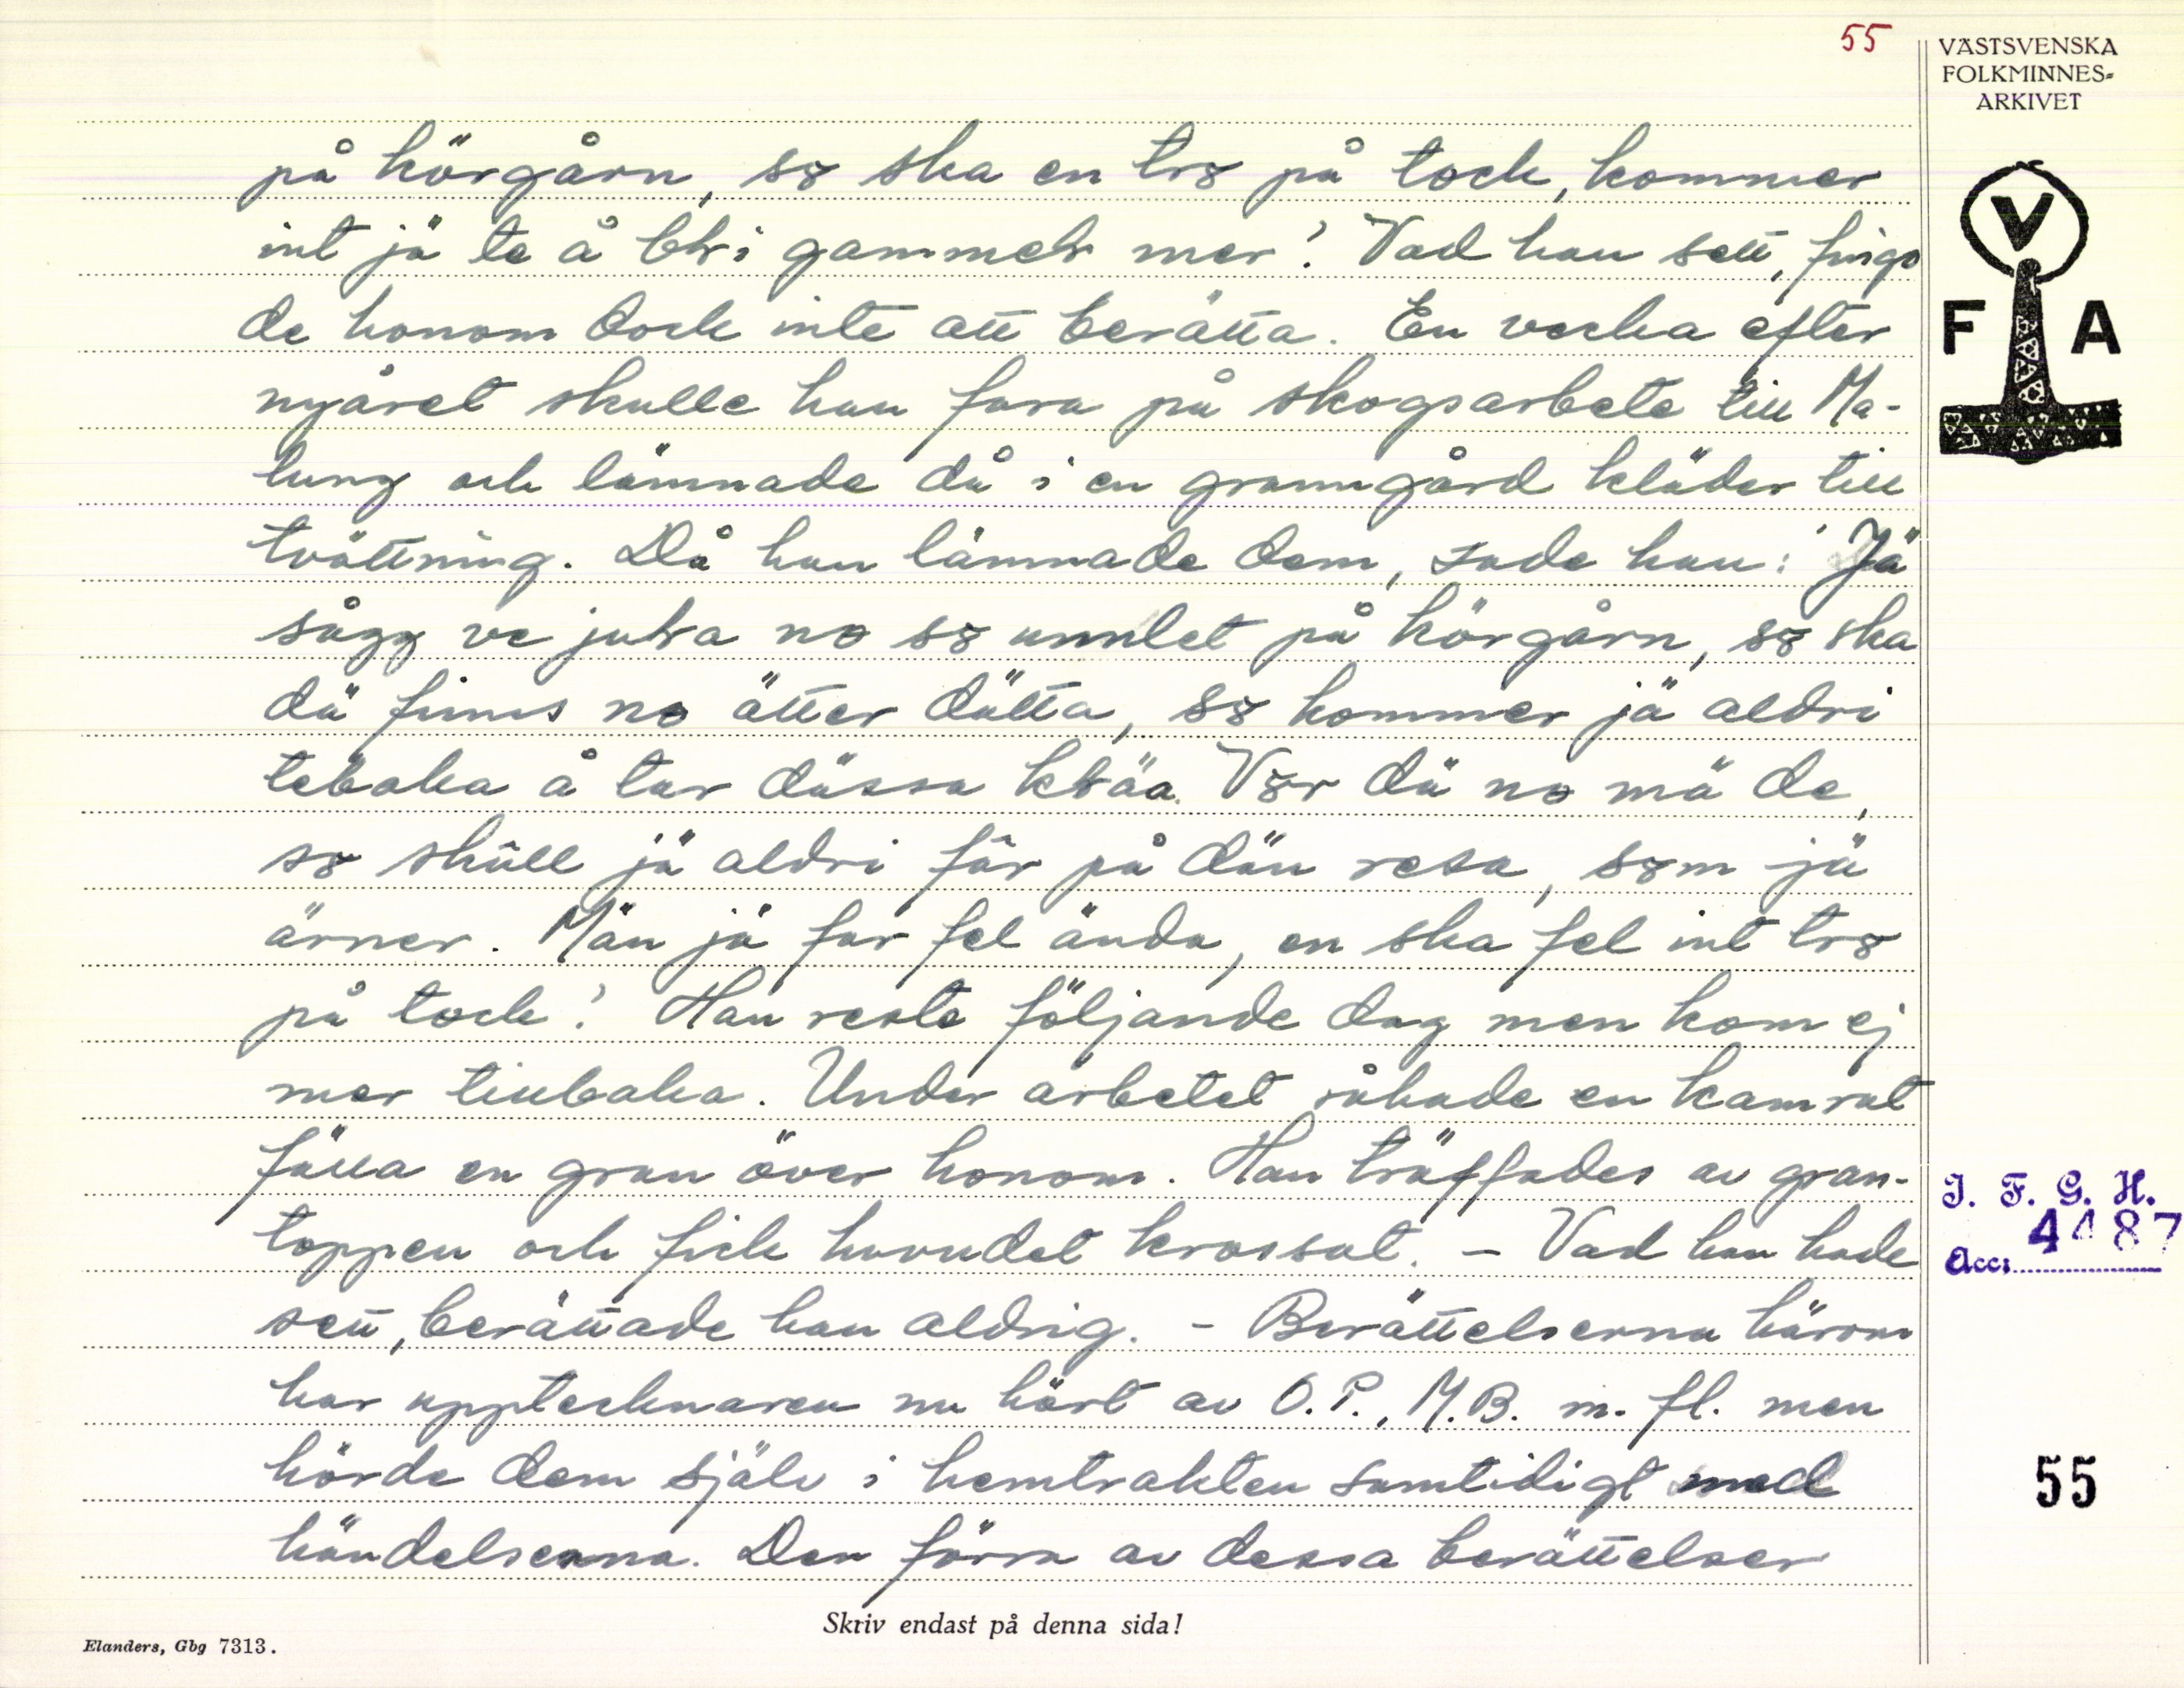 55
VÄSTSVENSKA
FOLKMINNES=
ARKIVET
V
F A
på körgårn, sȣ ska en trȣ på tock, kommer
int jä te å błi gammeł mer! Vad han sett, fingo
de honom dock inte att berätta. En vecka efter
nyåret skulle han fara på skogsarbete till Ma-
lung och lämnade då i en granngård kläder till
tvättning. Då han lämnade dem, sade han: "Jä
sågg ve juła no sȣ unnlet på körgårn, sȣ ska
dä finns no ätter dätta, sȣ kommer jä aldri
tebaka å tar dässa kłäa. Vȣr dä no mä de,
sȣ skûll jä aldri fâr på dän resa, sȣm jä
ärner. Män jä far fel ända, en ska fel int trȣ
på tock! Han reste följande dag men kom ej
mer tillbaka. Under arbetet råkade en kamrat
fälla en gran över honom. Han träffades av gran-
toppen och fick huvudet krossat. – Vad han hade
sett, berättade han aldrig. – Berättelserna härom
har upptecknaren nu hört av O.P., M.B. m. fl. men
hörde dem själv i hemtrakten samtidigt med
händelserna. Den förra av dessa berättelser
I. F. G. H.
4487
Acc:
55
Skriv endast på denna sida!
Elanders, Gbg 7313.